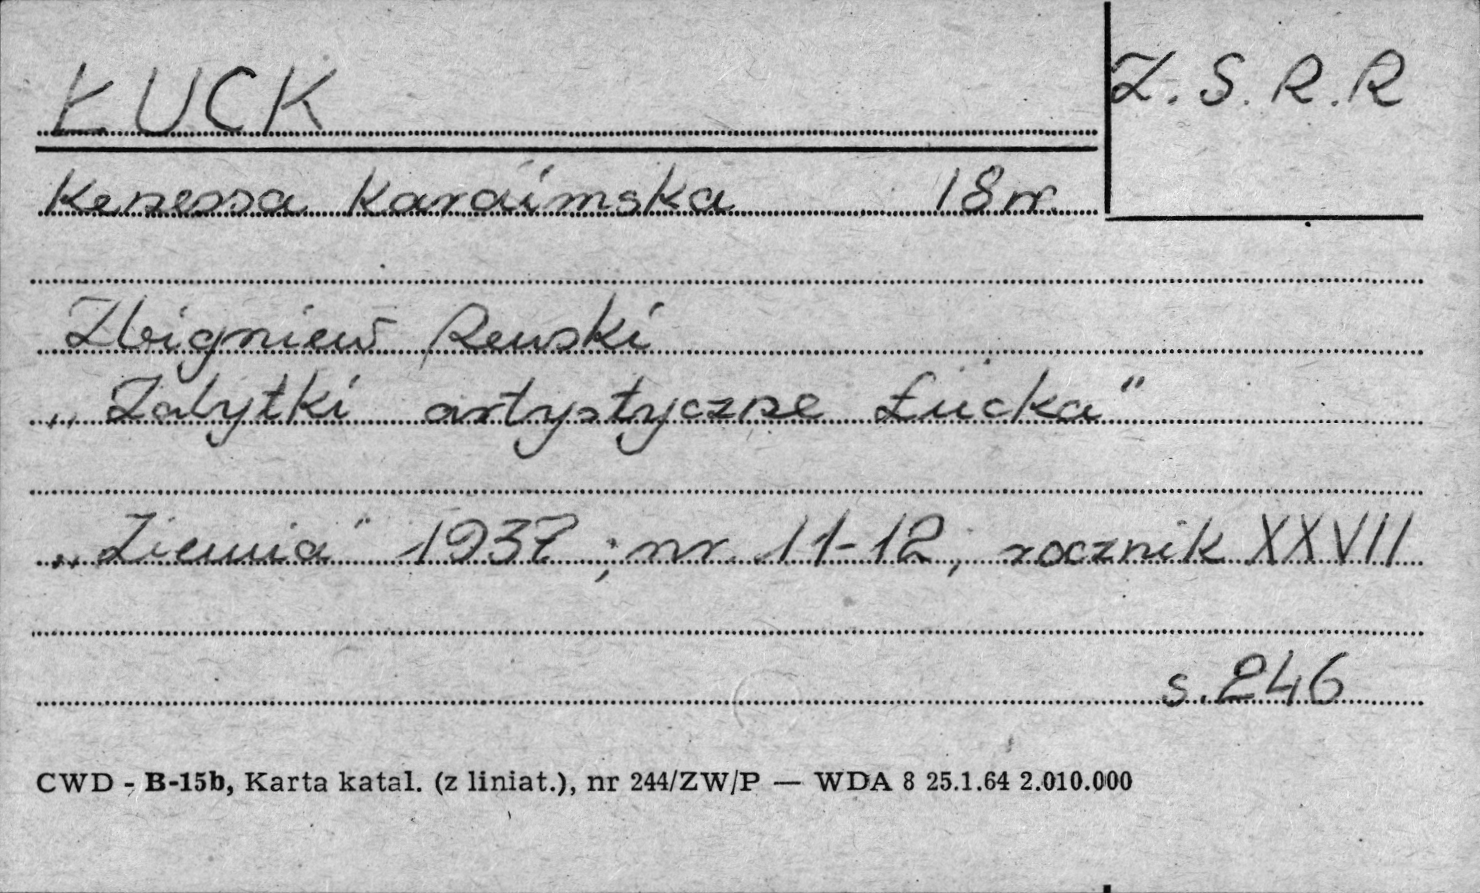 ŁUCK
Z.S.R.R
Kenessa Karaimska 18 w.
Zbigniew Rewski
„Zabytki artystyczne Łucka"
„Ziemia" 1937; nr. 11-12, rocznik XXVII
s. 246
CWD - B-15b, Karta katal. (z liniat.), nr 244/ZW/P — WDA 8 25.1.64 2.010.000